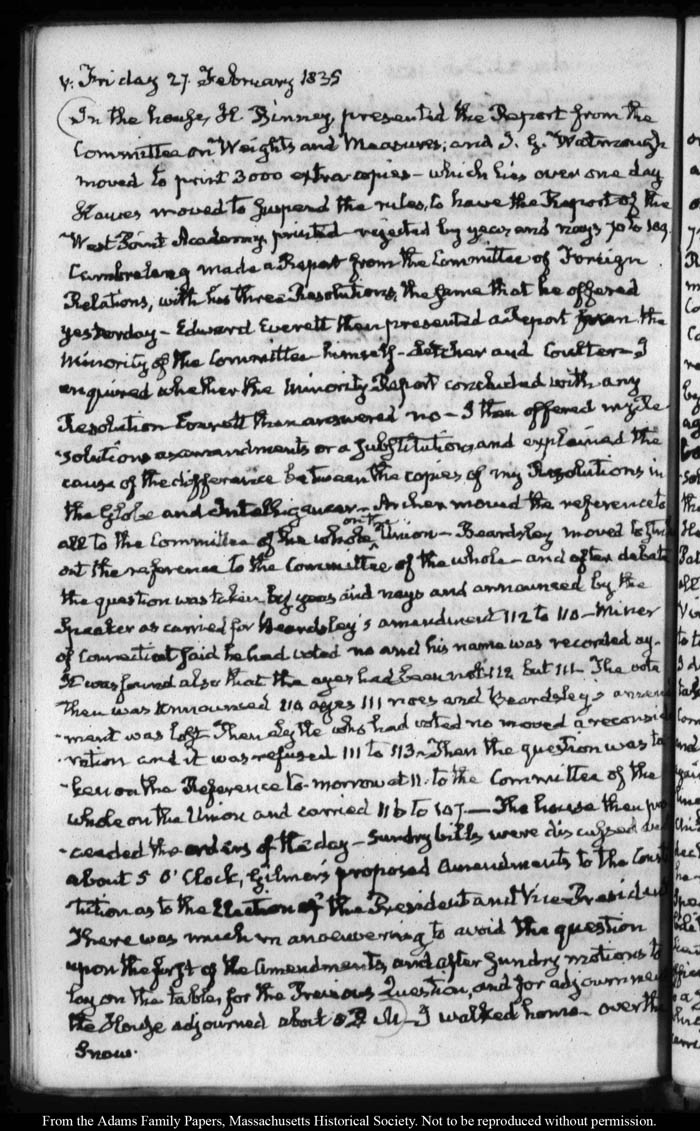 V. Friday 27. February 1835
In the house, H. Binney presented the Report from the
Committee on Weights and Measures; and J. G. Watmough
moved to print 3000 extra copies - which lies over one day
Hawes moved to suspend the rules, to have the Report of the
West Point Academy printed - rejected by yeas and nays 70 to 109.
Cambreleng made a Report from the Committee of Foreign
Relations, with his three Resolutions, the same that he offered
yesterday - Edward Everett then presented a Report from the
Minority of the Committee himself - Letcher and Coulter - I
enquired whether the Minority Report concluded with any
Resolution Everett then answered no - I then offered my Re-
-solutions as amendments or a substitution, and explained the
cause of the difference between the copies of my Resolutions in
the Globe and Intelligencer - Archer moved the reference to
all to the Committee of the whole on the Union - Beardsley moved to
out the reference to the Committee of the whole - and after debate
the question was taken by yeas and nays and announced by the
Speaker as carried for Beardsley's amendment 112 to 110 - Miner
of Connecticut said he had voted no and his name was recorded ay.
It was found also that the ayes had been not 112 but 111. The vote
then was announced 110 ayes 111 noes and Beardsley's
-ment was lost. Then who had voted no moved a reconside
-ration and it was refused 111 to 113. Then the question was ta
-ken on the Reference to-morrow at 11. to the Committee of the
whole on the Union and carried 116 to 107. — The house then pro
-ceeded the orders of the day - Sundry bills were discussed
about 5 O'Clock, Gilmer's proposed Amendments to the Const
-tution as to the Election of the President and Vice-President
There was much manoeuvering to avoid the question
upon the first of the Amendments, and after sundry motions to
lay on the table, for the Previous Question, and for adjournment
the House adjourned about - I walked home - over the
Snow.
From the Adams Family Papers, Massachusetts Historical Society. Not to be reproduced without permission.